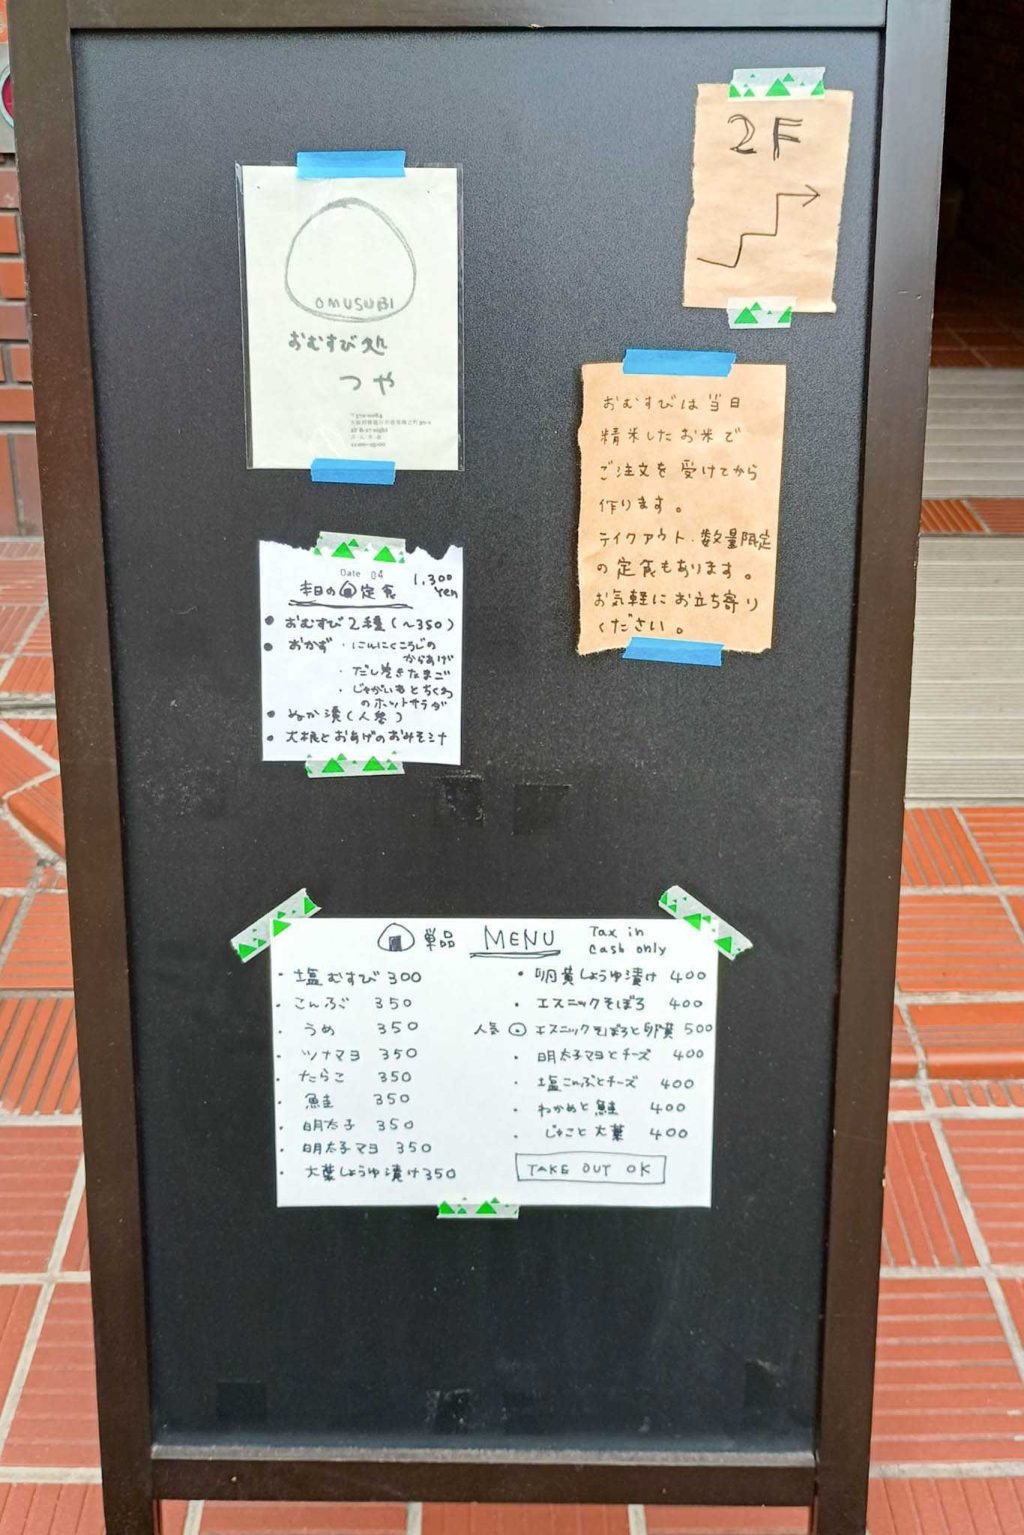 2F
OMUSUBI
おむすび処
つや
11:00-15:00
おむすびは当日
精米したお米で
ご注文を受けてから
作ります。
テイクアウト、数量限定
の定食もあります。
お気軽にお立ち寄り
ください。
Date 04
本日の🍙定食 1,300 Yen
• おむすび2種(〜350)
• おかず ・にんにくこうじの
からあげ
・だし巻きたまご
・じゃがいもとちくわ
のホットサラダ
• ぬか漬(人参)
• 大根とおあげのおみそ汁
単品 MENU Tax in
Cash only
・塩むすび 300
・こんぶ 350
・うめ 350
・ツナマヨ 350
・たらこ 350
・鮭 350
・明太子 350
・明太子マヨ 350
・大葉しょうゆ漬け 350
・卵黄しょうゆ漬け 400
・エスニックそぼろ 400
人気 エスニックそぼろと卵黄 500
・明太子マヨとチーズ 400
・塩こんぶとチーズ 400
・わかめと鮭 400
・じゃこと大葉 400
TAKE OUT OK